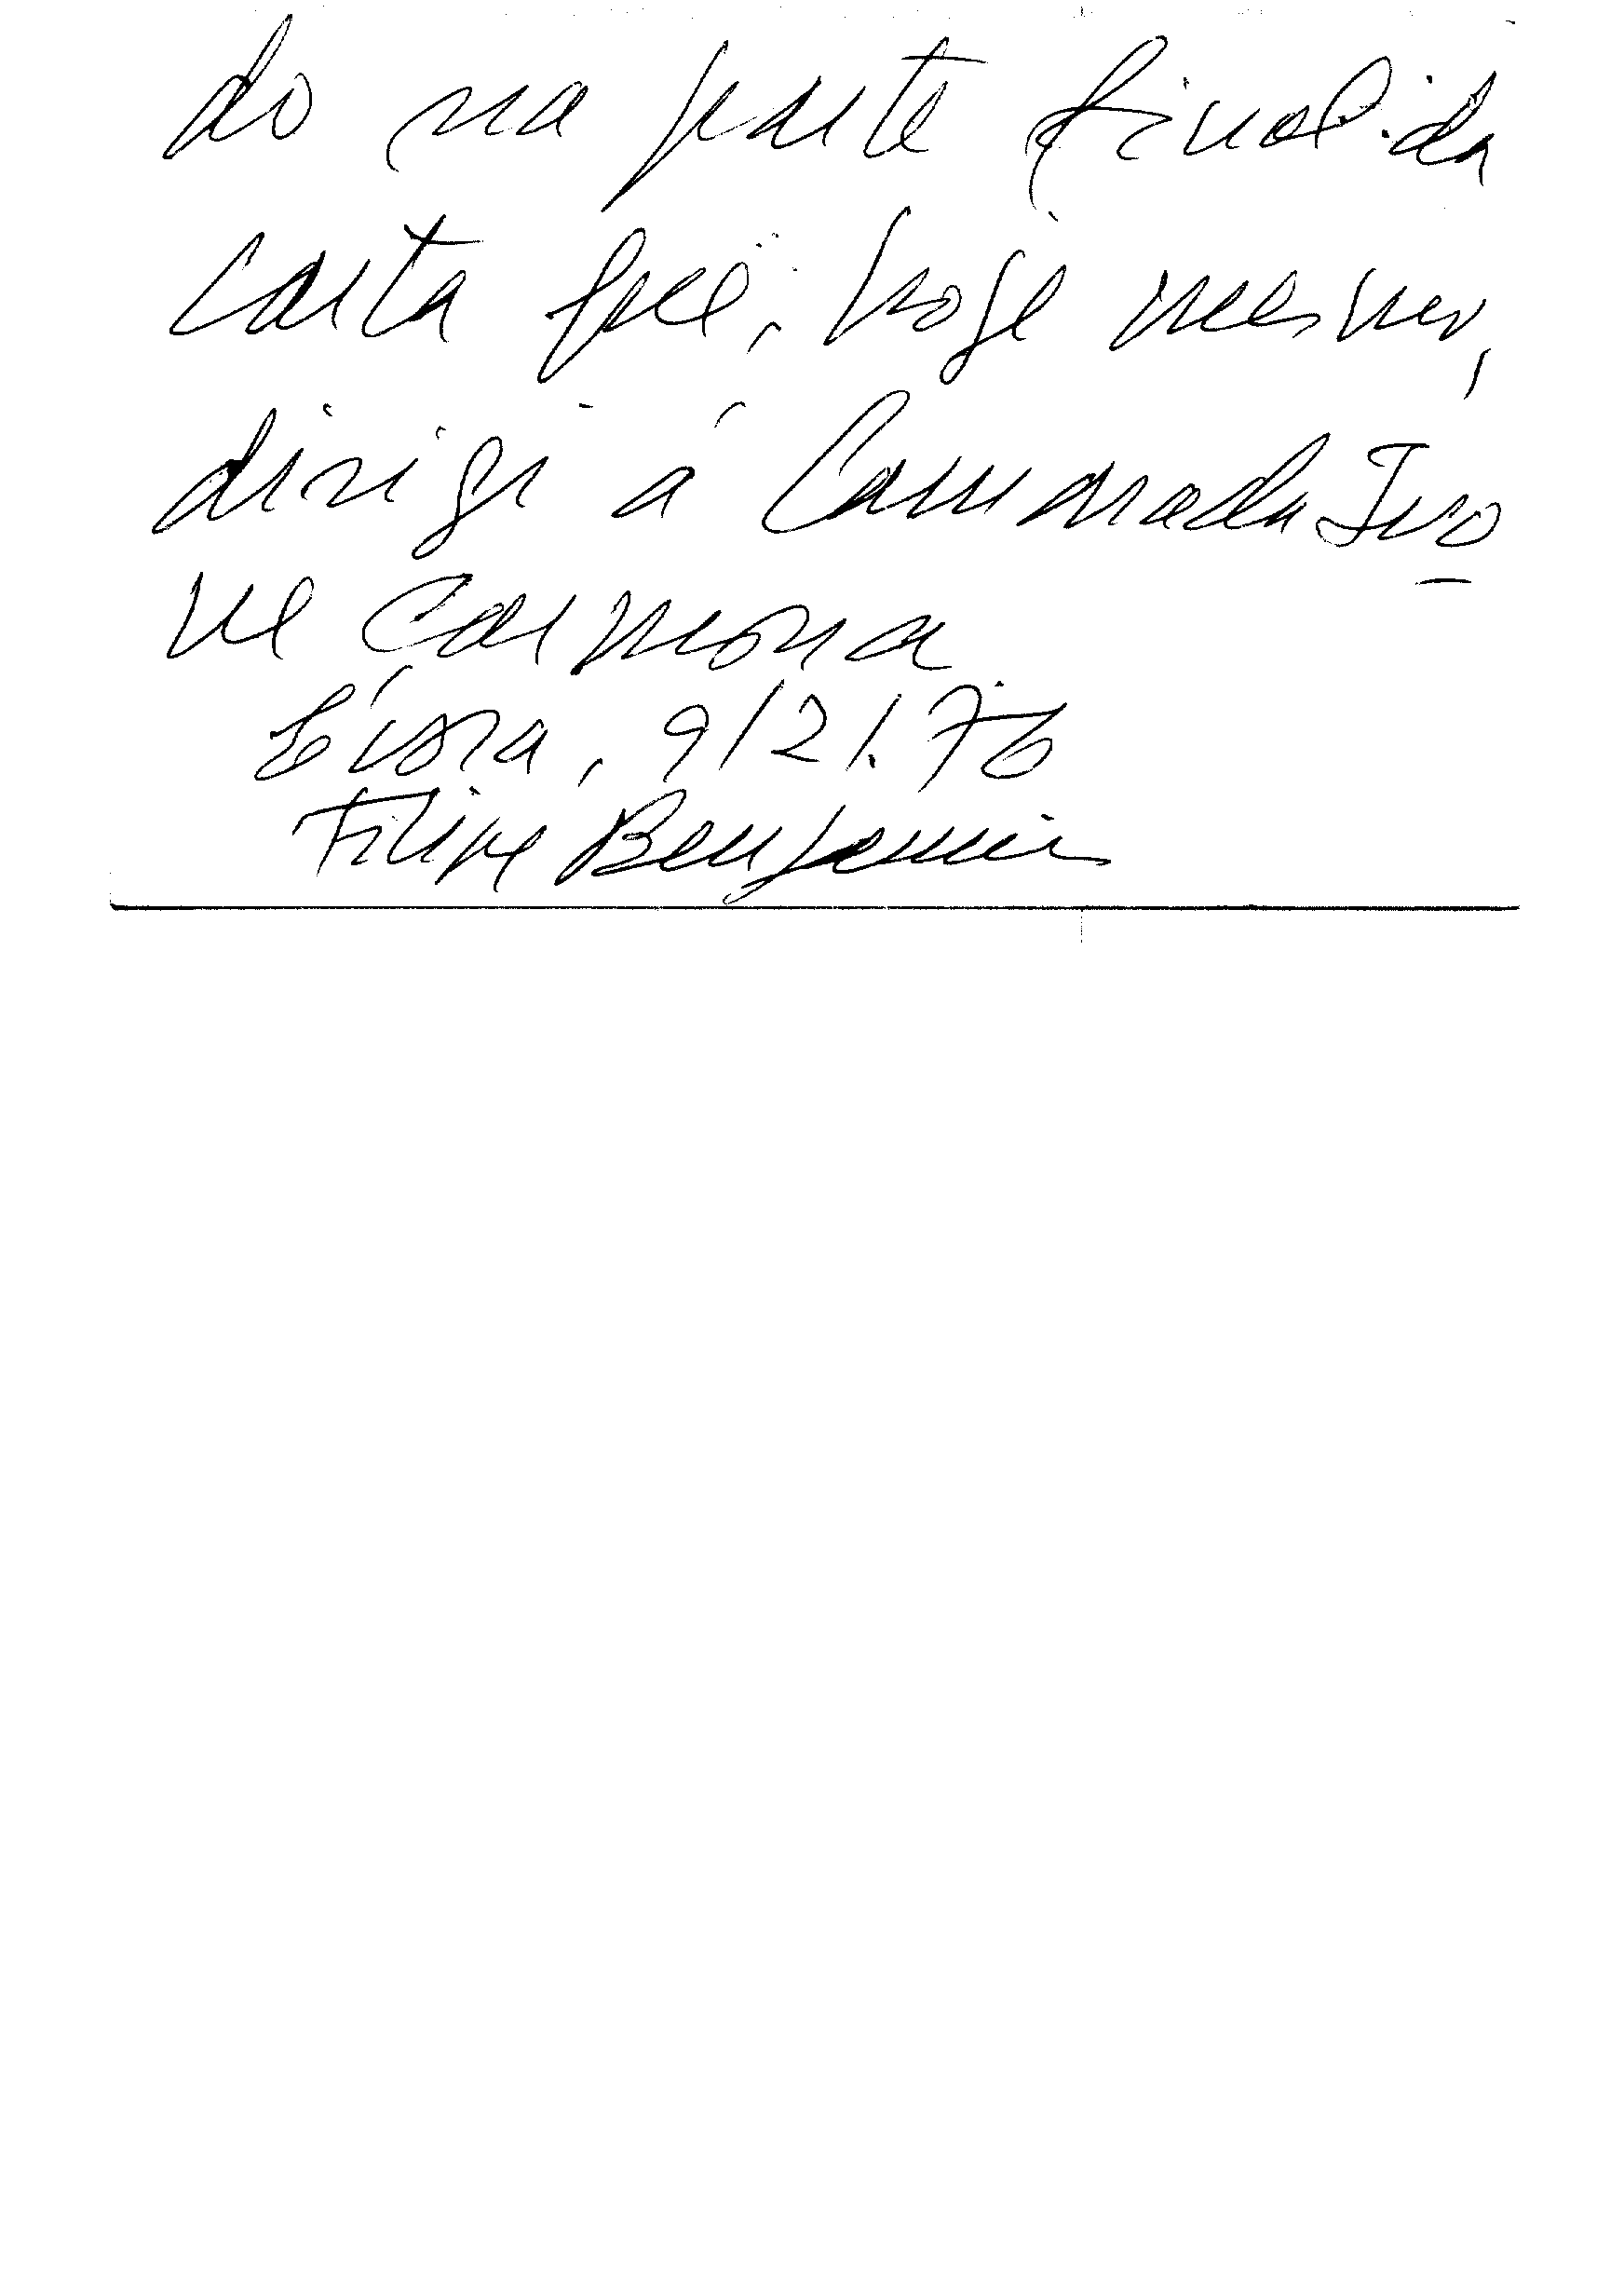 do na parte final da
carta que, hoje mesmo,
dirigi á Camarada Ivo
ne Carmona.
Évora, 9/2/.76
Filipe Benjamim